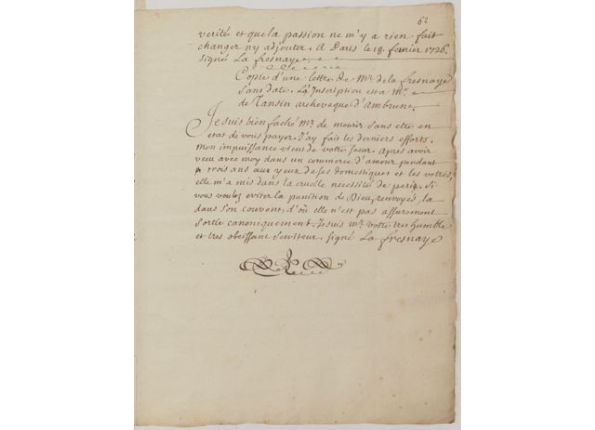 62
verité et que la passion ne m'y a rien fait
changer ny adjouter. A Paris le 18. fevrier 1726.
signé La fresnaye
Copie d'une lettre de Mr de la fresnaye
sans date. La Inscription est a Mr
de Tansin archeveque d'Ambrun.
Je suis bien faché Mr de mourir sans etre en
etat de vous payer. J'ay fait les derniers efforts.
mon impuissance vient de votre soeur. Apres avoir
vecu avec moy dans un commerce d'amour pendant
trois ans aux yeux de ses domestiques et les votres,
elle m'a mis dans la cruelle necessité de perir. Si
vous voulez eviter la punition de Dieu, renvoyez la
dans son couvent, d'où elle n'est pas assurement
sortie canoniquement. Je suis Mr votre tres humble
et tres obeissant serviteur. signé La fresnaye